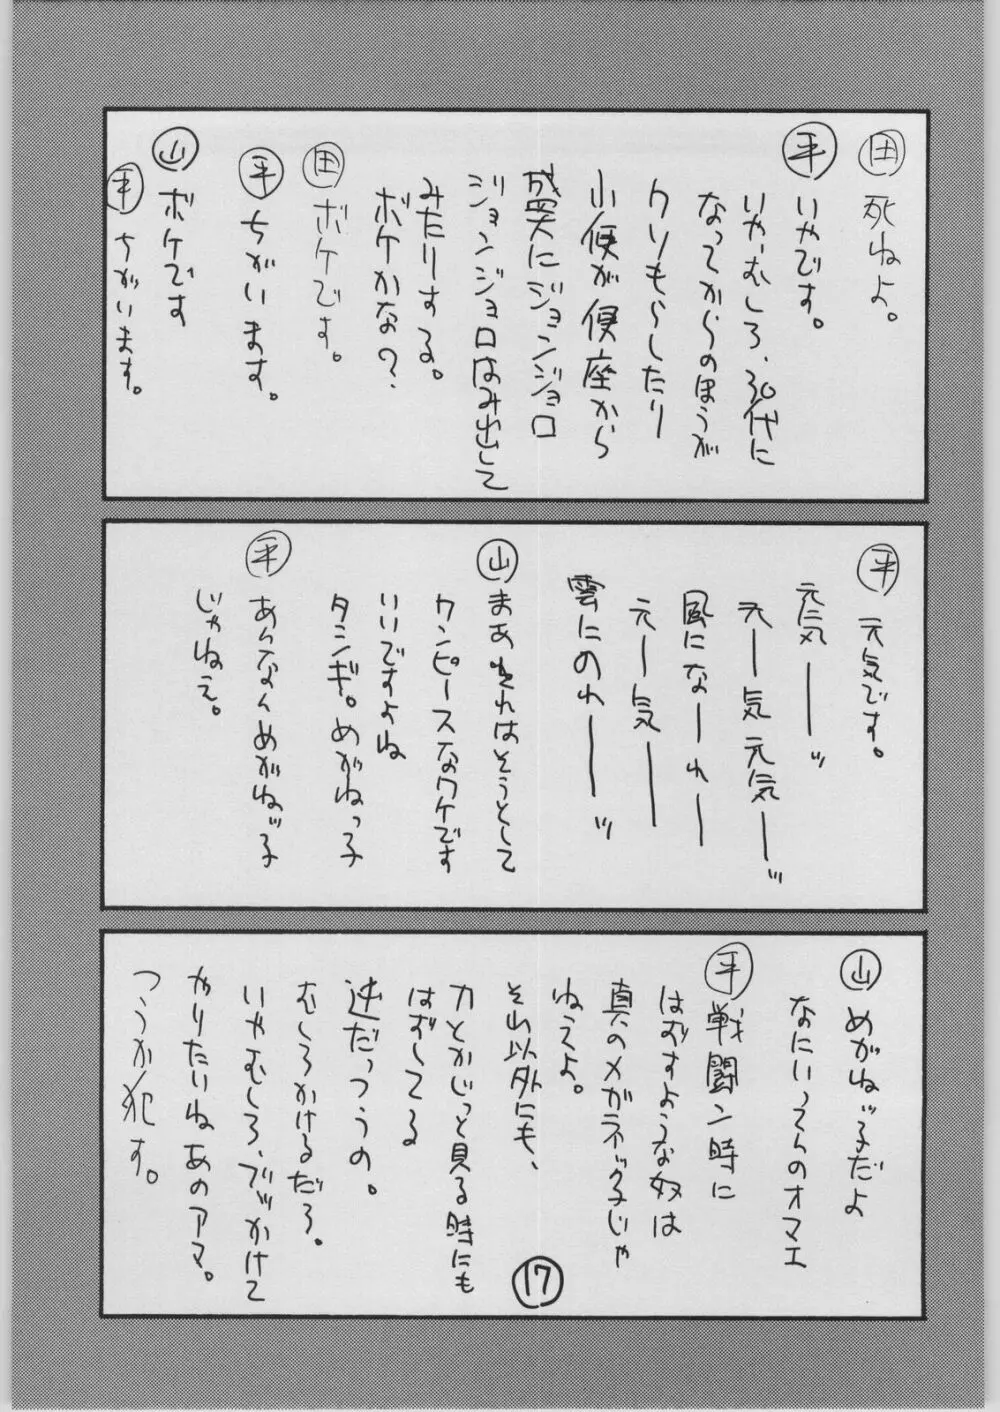 田 死ねよ。
平 いやです。
いや、むしろ、30代に
なってからのほうが
クソもらしたり
小便が便座から
盛大にジョンジョロ
ジョンジョロはみ出して
みたりする。
ボケかな？
田 ボケです。
平 ちがいます。
山 ボケです
平 ちがいます。
平 元気です。
元気——ッ
元—気元気—ッ
風にな—れ—
元—気—
雲にのれ—ッ
山 まあそれはそうとして
ワンピースなワケです
いいですよね
タシギ。めがねっ子
平 あんなんめがねッ子
じゃねえ。
山 めがねッ子だよ
なにいってんのオマエ
平 戦闘ン時に
はずすような奴は
真のメガネッ子じゃ
ねえよ。
それ以外にも、
刀とかじっと見る時にも
はずしてる
逆だっつうの。
むしろかけるだろ。
いやむしろ、ブッかけて
やりたいねあのアマ。
つうか犯す。
17